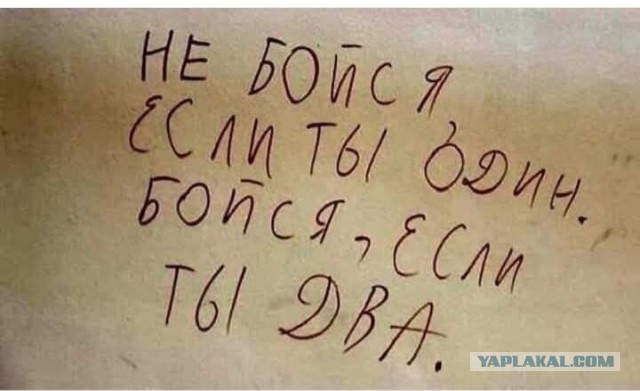 НЕ БОЙСЯ,
ЕСЛИ ТЫ ОДИН.
БОЙСЯ, ЕСЛИ
ТЫ ДВА.
YAPLAKAL.COM